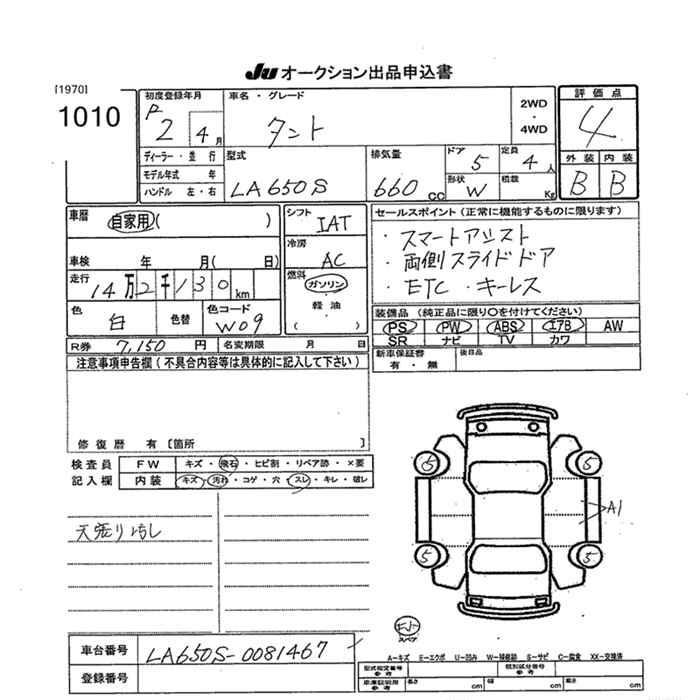 Ju オークション出品申込書
[1970]
1010
初度登録年月
R 2 4 月
車名・グレード
タント
2WD
・
4WD
評価点
4
外装 内装
B B
ディーラー・並行
モデル年式 年
ハンドル 左・右
型式
LA650S
排気量
660 cc
ドア 5
定員 4 人
形状 W
積載 Kg
車暦
自家用 ( )
シフト
IAT
車検 年 月( 日)
冷房
AC
走行
14万2千130 km
燃料
ガソリン
・
軽油
・
( )
色 白 色替 色コード W09
セールスポイント(正常に機能するものに限ります)
・スマートアシスト
・両側スライドドア
・ETC ・キーレス
装備品(純正品に限り○を付けてください)
PS PW ABS エアB AW
SR ナビ TV カワ
R券 7,150 円 名変期限 月 日
新車保証書 後日品
有・無
注意事項申告欄(不具合内容等は具体的に記入して下さい)
修復暦 有[箇所 ]
検査員 FW キズ・飛石・ヒビ割・リペア跡・×要
記入欄 内装 キズ・汚れ・コゲ・穴・スレ・キレ・破レ
天張り汚し
5 5
A1
5 5
スペア
車台番号 LA650S-0081467
登録番号
A−キズ E−エクボ U−凹み W−補修跡 S−サビ C−腐食 XX−交換済
型式指定番号 参考
類別区分番号 参考
車庫証明用 参考 長さ cm 幅 cm 高さ cm